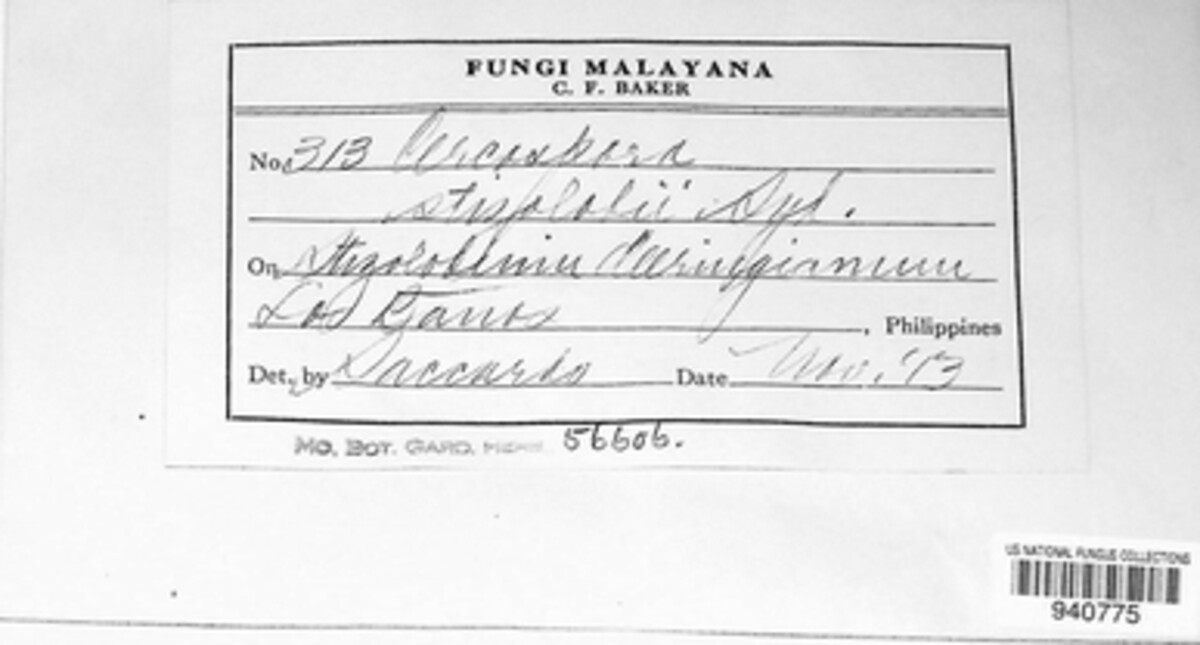 FUNGI MALAYANA
C. F. BAKER
No. 313 Cercospora
stizolobii Syd.
On Stizolobium
Los Banos, Philippines
Det. by Saccardo Date Nov. '13
MO. BOT. GARD. HERB. 56606.
US NATIONAL FUNGUS COLLECTIONS
940775